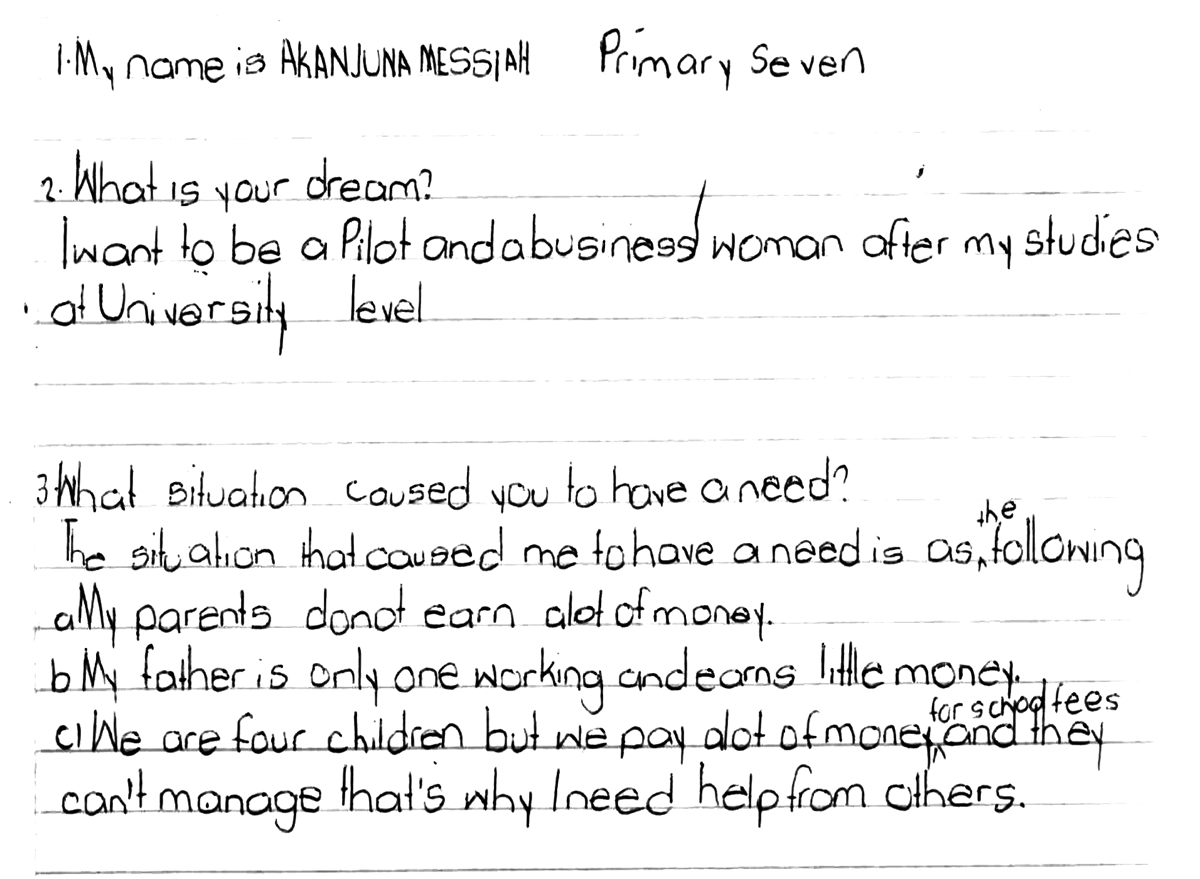 1. My name is AKANJUNA MESSIAH Primary Seven
2. What is your dream?
I want to be a Pilot and a business woman after my studies
at University level
3 What situation caused you to have a need?
The situation that caused me to have a need is as the following
a My parents donot earn alot of money.
b My father is only one working and earns little money.
c) We are four children but we pay alot of money for school fees and they
can't manage that's why I need help from others.